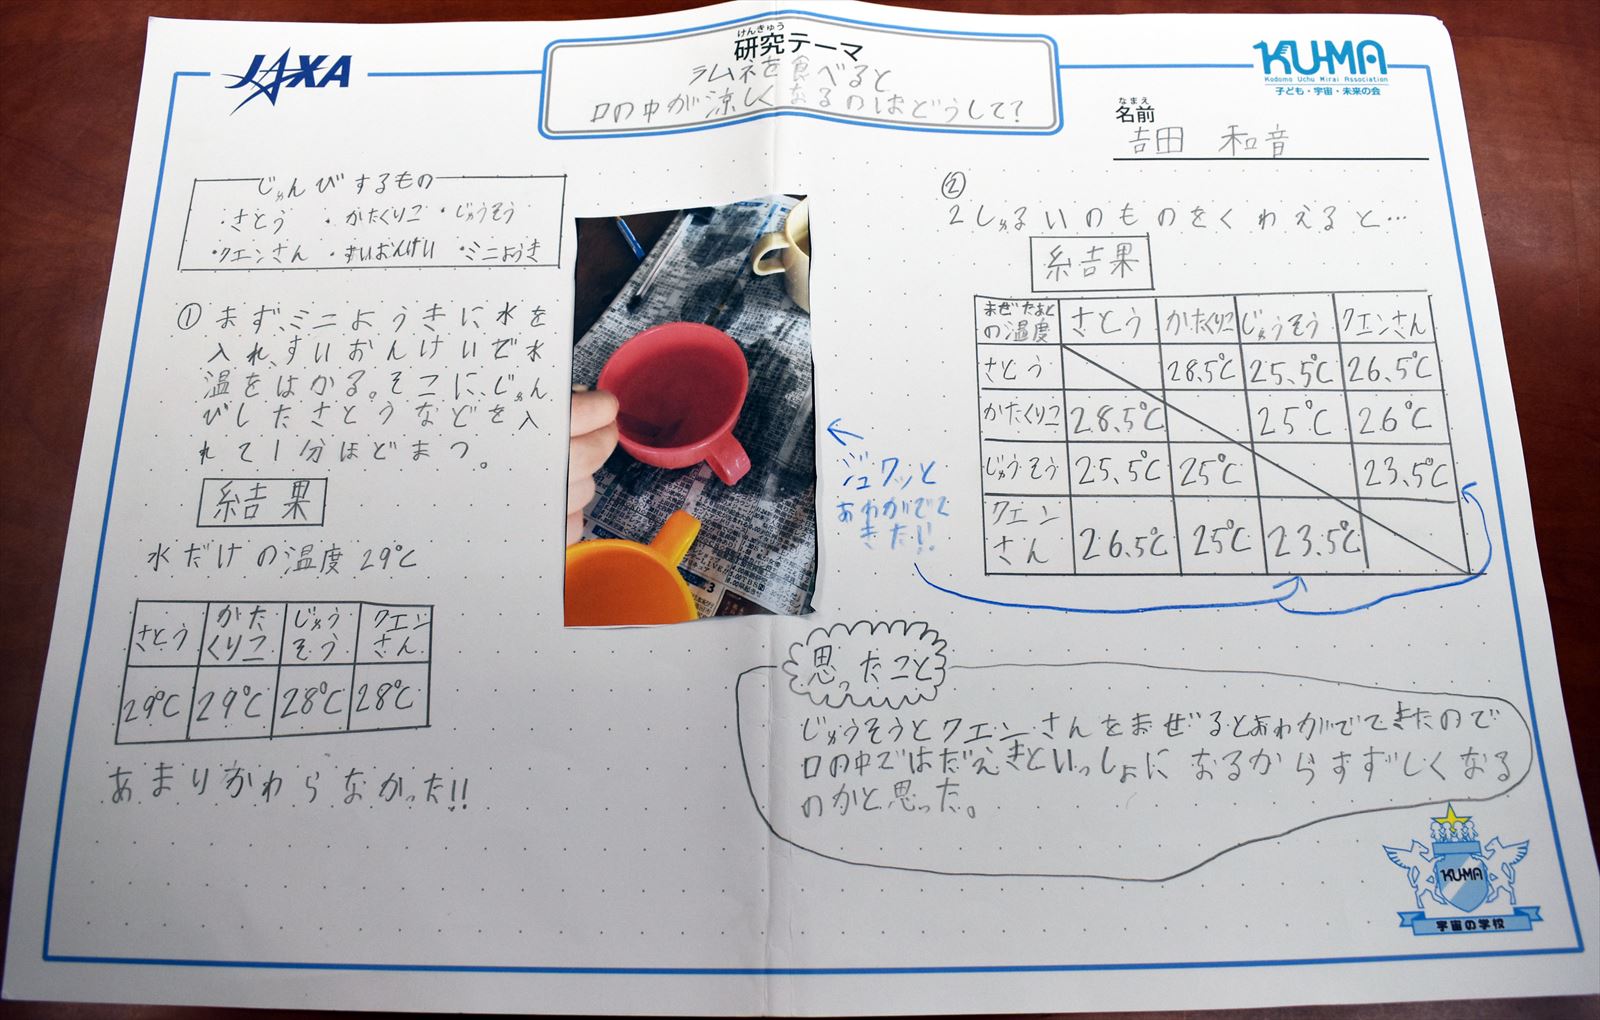 JAXA
けんきゅう
研究テーマ
ラムネを食べると
口の中が涼しくなるのはどうして?
KU-MA
Kodomo Uchu Mirai Association
子ども・宇宙・未来の会
なまえ
名前
吉田 和音
じゅんびするもの
・さとう ・かたくりこ ・じゅうそう
・クエンさん ・すいおんけい ・ミニようき
① まず、ミニようきに水を
入れ、すいおんけいで水
温をはかる。そこに、じゅん
びしたさとうなどを入
れて1分ほどまつ。
結果
水だけの温度 29℃
さとう かたくりこ じゅうそう クエンさん
29℃ 29℃ 28℃ 28℃
あまりかわらなかった!!
ジュワッと
あわがでて
きた!!
②
2しゅるいのものをくわえると…
結果
まぜたあとの温度 さとう かたくりこ じゅうそう クエンさん
さとう 28.5℃ 25.5℃ 26.5℃
かたくりこ 28.5℃ 25℃ 26℃
じゅうそう 25.5℃ 25℃ 23.5℃
クエンさん 26.5℃ 25℃ 23.5℃
思ったこと
じゅうそうとクエンさんをまぜるとあわがでてきたので
口の中ではだえきといっしょになるからすずしくなる
のかと思った。
KU-MA
宇宙の学校